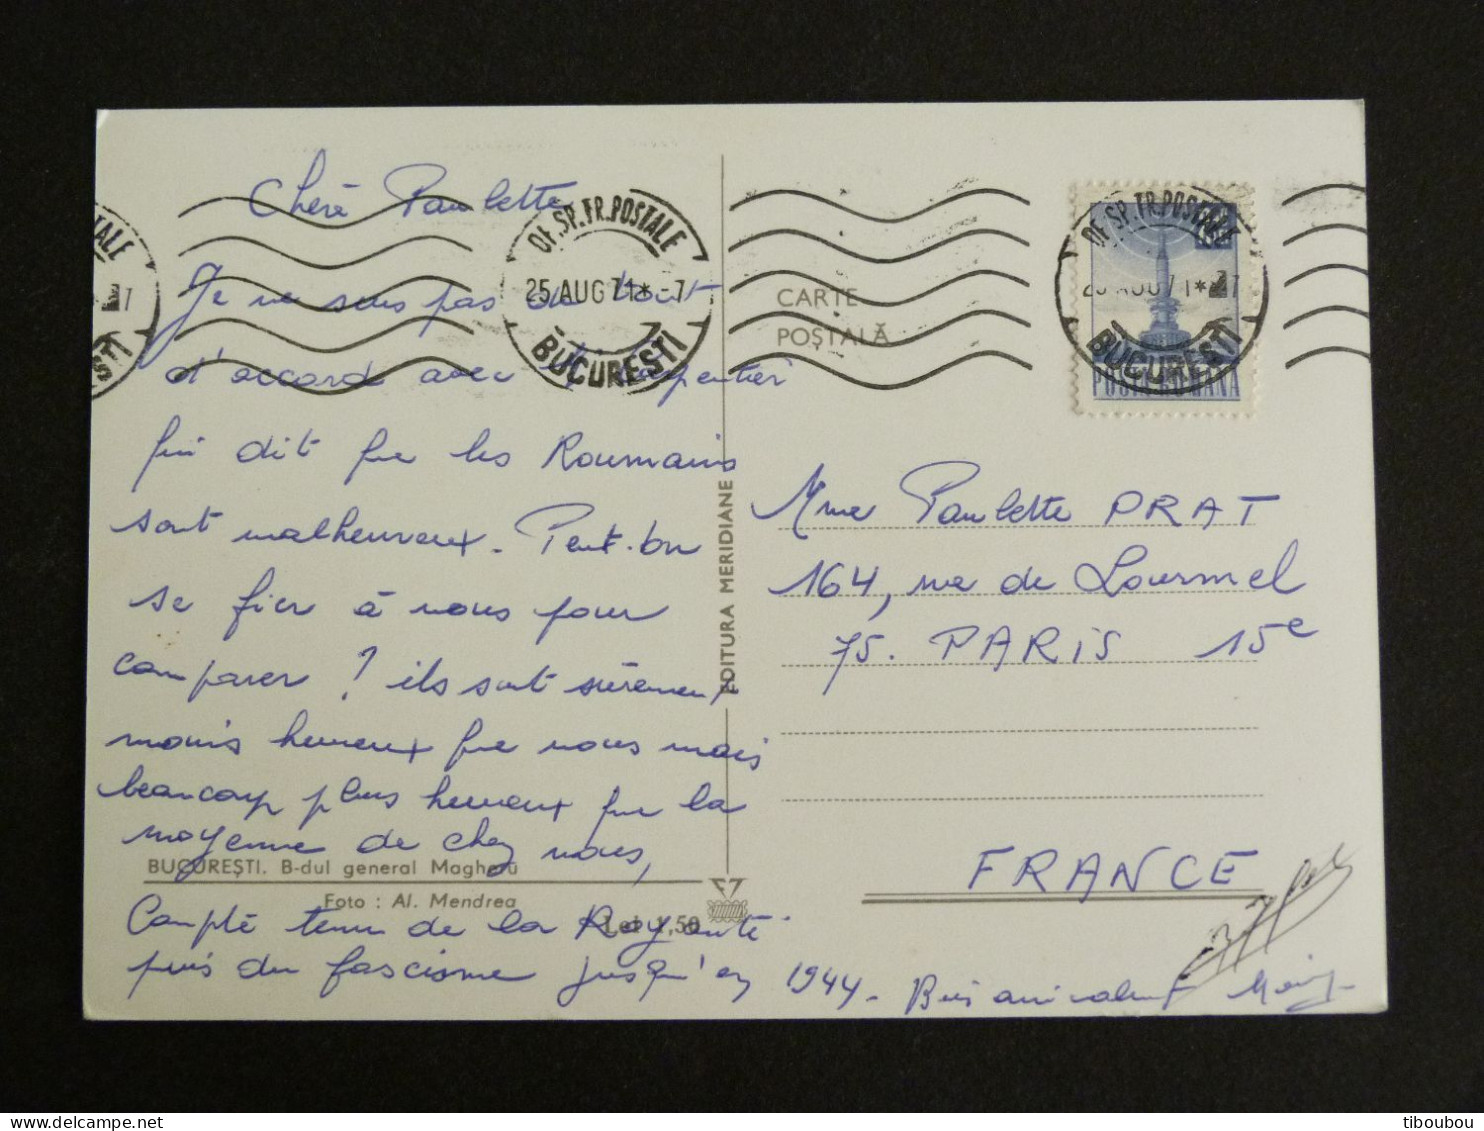 Chère Paulette,
Je ne suis pas du tout
d'accord avec Charpentier
qui dit que les Roumains
sont malheureux. Peut-on
se fier à nous pour
comparer ? ils sont sûrement
moins heureux que nous mais
beaucoup plus heureux que la
moyenne de chez nous,
Compte tenu de la Royauté
puis du fascisme jusqu'en 1944. Bien amicalement
BUCUREȘTI. B-dul general Magheru
Foto : Al. Mendrea
Lei 1,50
EDITURA MERIDIANE
OF.SP.TR.POSTALE
25 AUG 71 * -7
BUCUREȘTI
CARTE
POȘTALĂ
OF.SP.TR.POSTALE
25 AUG 71 * -7
BUCUREȘTI
POSTA ROMANA
Mme Paulette PRAT
164, rue de Lourmel
75. PARIS 15e
FRANCE
tiboubou